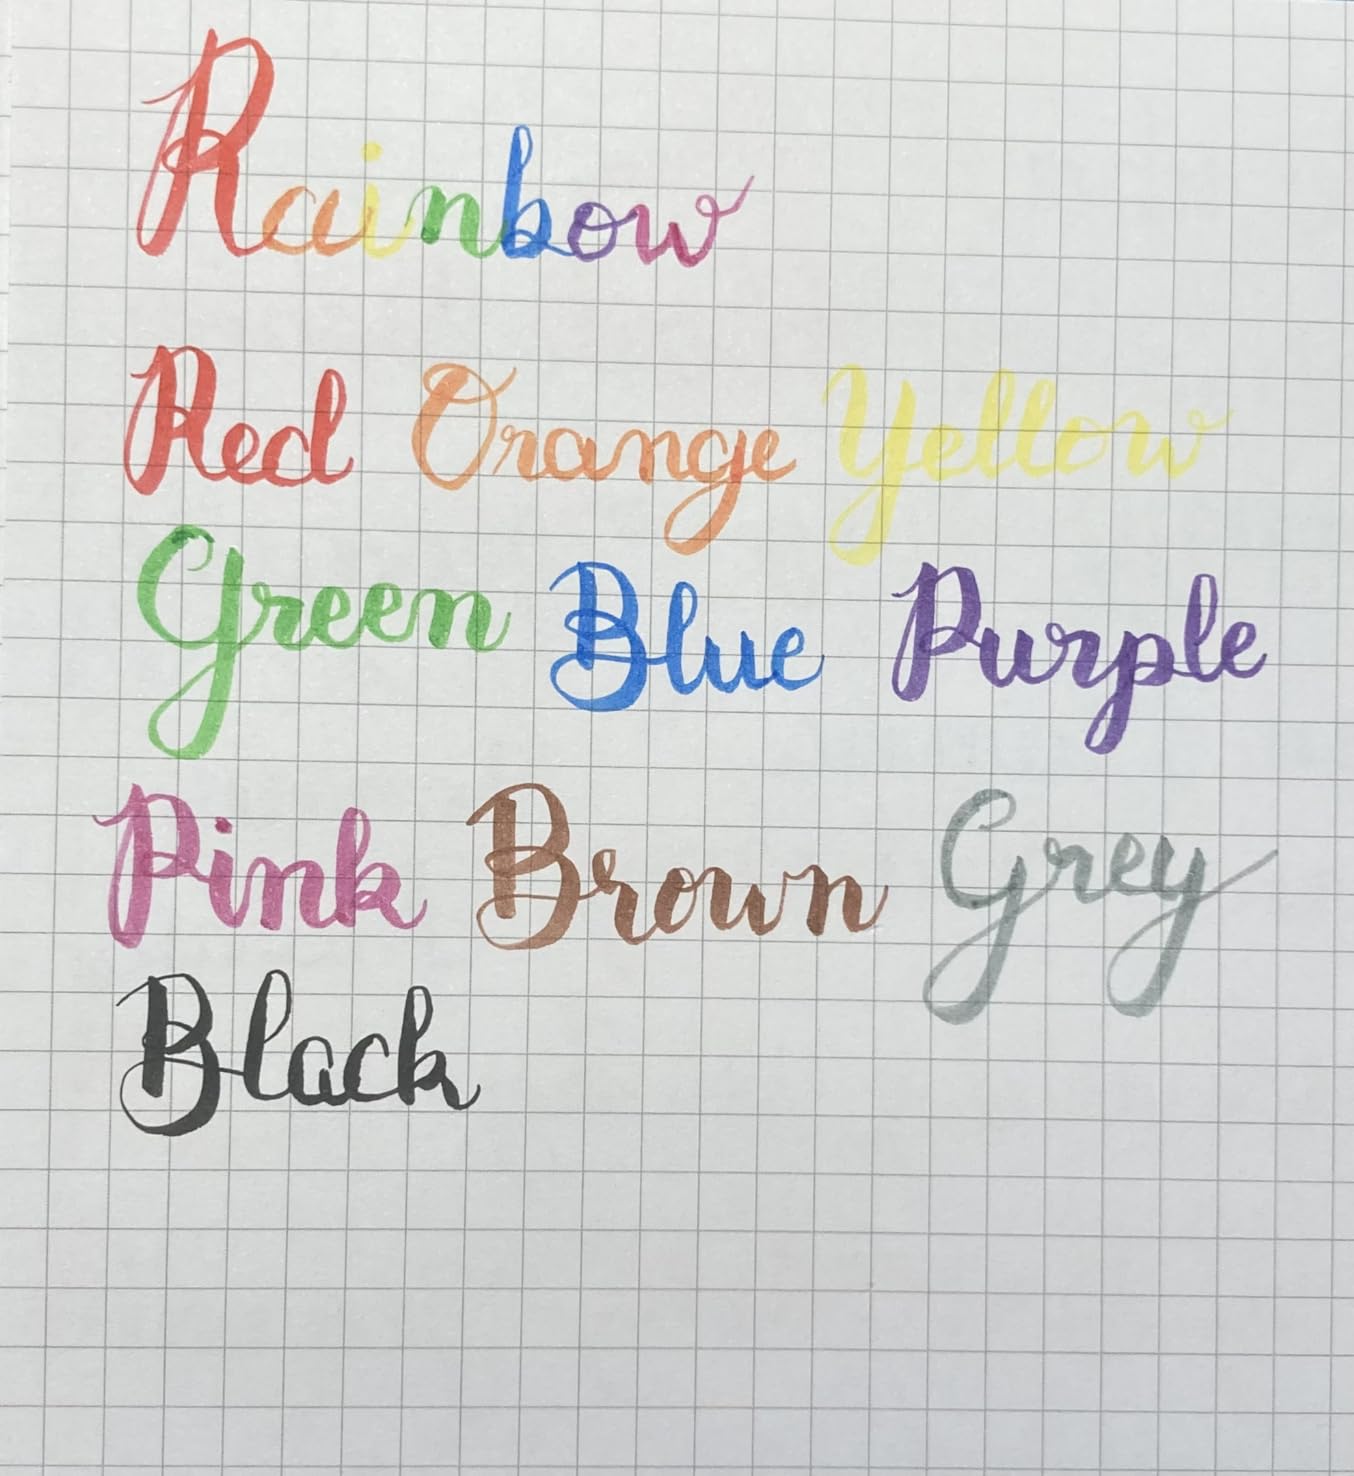 Rainbow
Red Orange Yellow
Green Blue Purple
Pink Brown Grey
Black